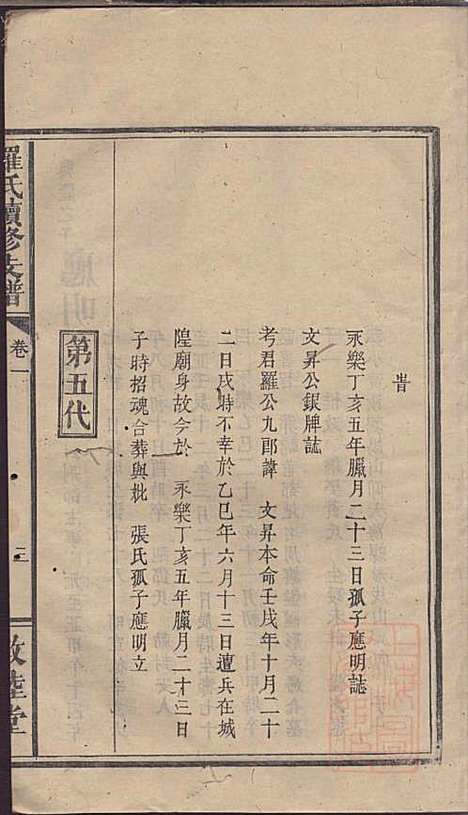 旹
永樂丁亥五年臘月二十三日孤子應明誌
文昇公銀牌誌
考君羅公九郎諱　文昇本命壬戌年十月二十
二日戌時不幸於乙巳年六月十三日遭兵在城
隍廟身故今於　永樂丁亥五年臘月二十三日
子時招魂合葬與妣　張氏孤子應明立
第五代
羅氏續修支譜
卷一
三
敦睦堂